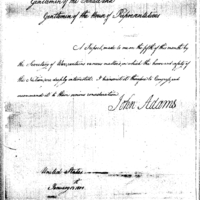 Gentlemen of the Senate and
Gentlemen of the House of Representatives
A Report made to me on the fifth of this month by
the Secretary of War contains various matters in which the honor and safety of
the Nation are deeply interested. I transmit it therefore to Congress, and
recommend it to their serious consideration.
John Adams
United States
January